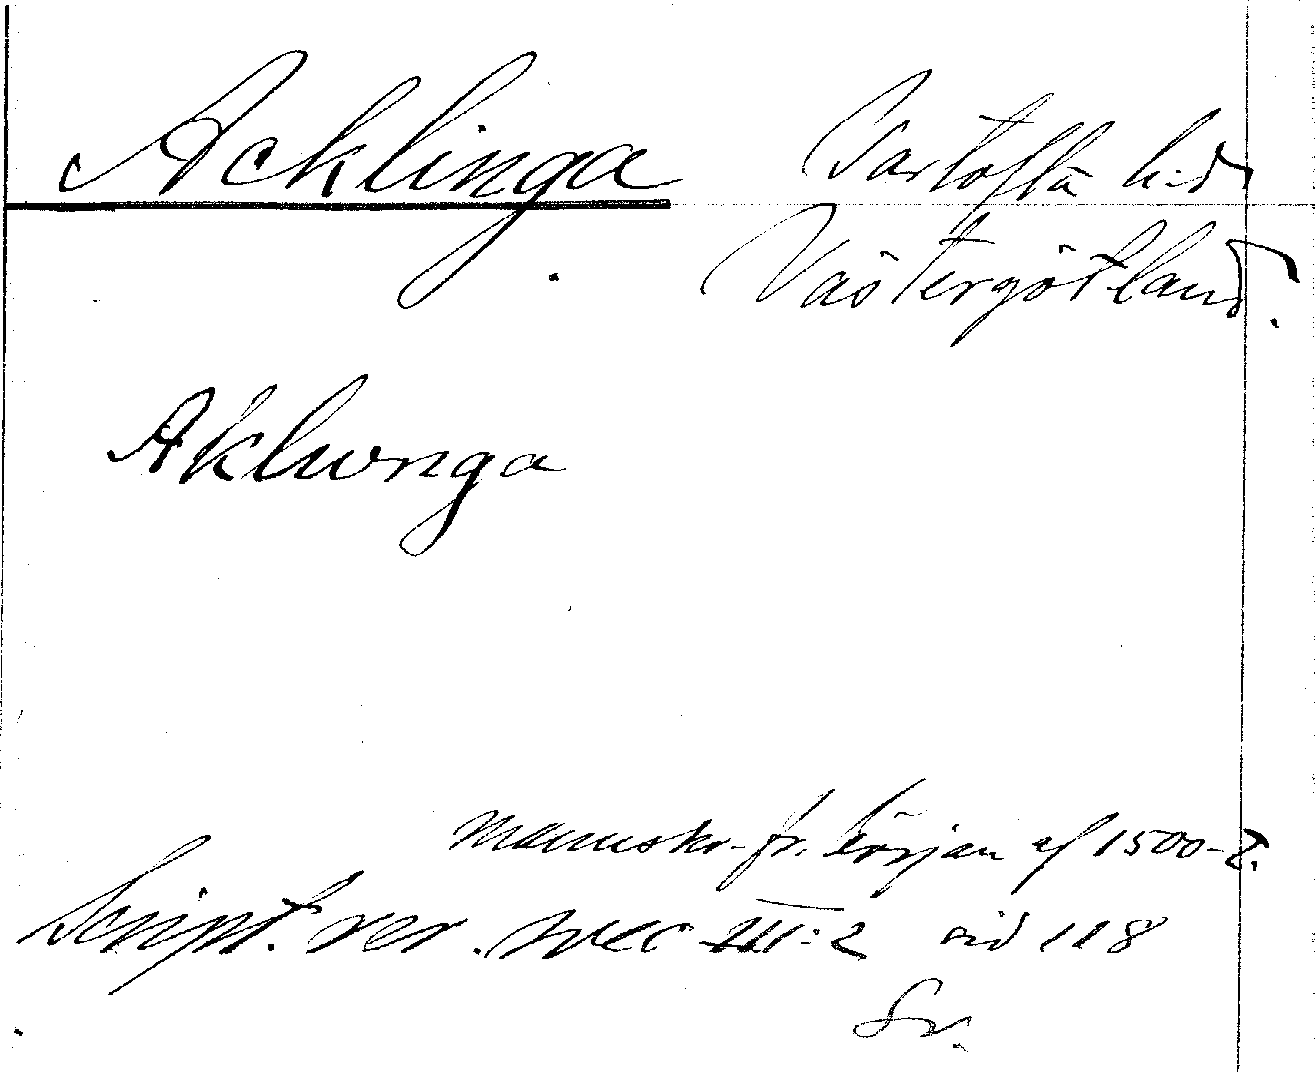 Acklinga Vartofta h:d
Västergötland.
Aklunga
manuskr. fr. början af 1500-t.
Script. rer. svec III:2 sid 118